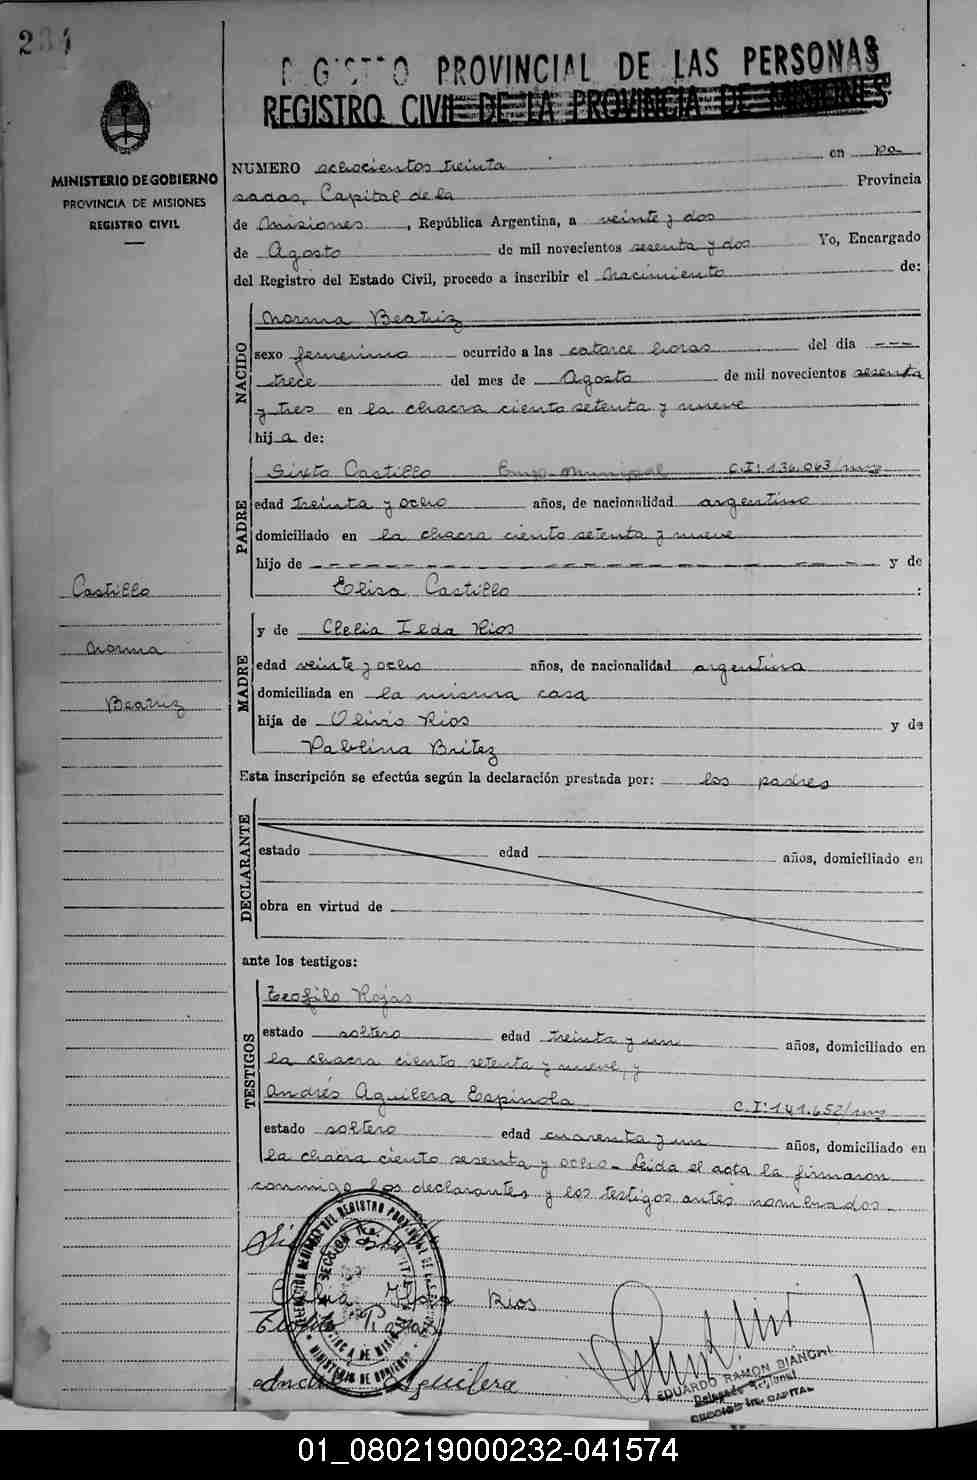 REGISTRO PROVINCIAL DE LAS PERSONAS
REGISTRO CIVIL DE LA PROVINCIA DE MISIONES
MINISTERIO DE GOBIERNO
PROVINCIA DE MISIONES
REGISTRO CIVIL
NUMERO ochocientos treinta en Po
sadas, Capital de la Provincia
de Misiones, República Argentina, a veinte y dos
de Agosto de mil novecientos sesenta y dos Yo, Encargado
del Registro del Estado Civil, procedo a inscribir el Nacimiento de:
NACIDO
Norma Beatriz
sexo femenino ocurrido a las catorce horas del dia ---
trece del mes de Agosto de mil novecientos sesenta
y tres en la chacra ciento setenta y nueve
hija de:
PADRE
Sixto Castillo Municipal C.I: 136.063/
edad treinta y ocho años, de nacionalidad argentino
domiciliado en la chacra ciento setenta y nueve
hijo de - - - - - - - - - - - - - - - - y de
Elisa Castillo :
Castillo
Norma
Beatriz
MADRE
y de Clelia Ilda Rios
edad veinte y ocho años, de nacionalidad argentina
domiciliada en la misma casa
hija de Olivio Rios y de
Pablina Britez
Esta inscripción se efectúa según la declaración prestada por: los padres
DECLARANTE
estado edad años, domiciliado en
obra en virtud de
ante los testigos:
TESTIGOS
Teofilo Rojas
estado soltero edad treinta y un años, domiciliado en
la chacra ciento setenta y nueve, y
Andrés Aguilera Espinola C.I: 141.652/
estado soltero edad cuarenta y un años, domiciliado en
la chacra ciento sesenta y ocho - Leida el acta la firmaron
conmigo los declarantes y los testigos antes nombrados.
Ilda Rios
Teofilo Rojas
Aguilera
EDUARDO RAMON BIANCHI
Delegado Regional
SECCION 1ra. CAPITAL
01_080219000232-041574